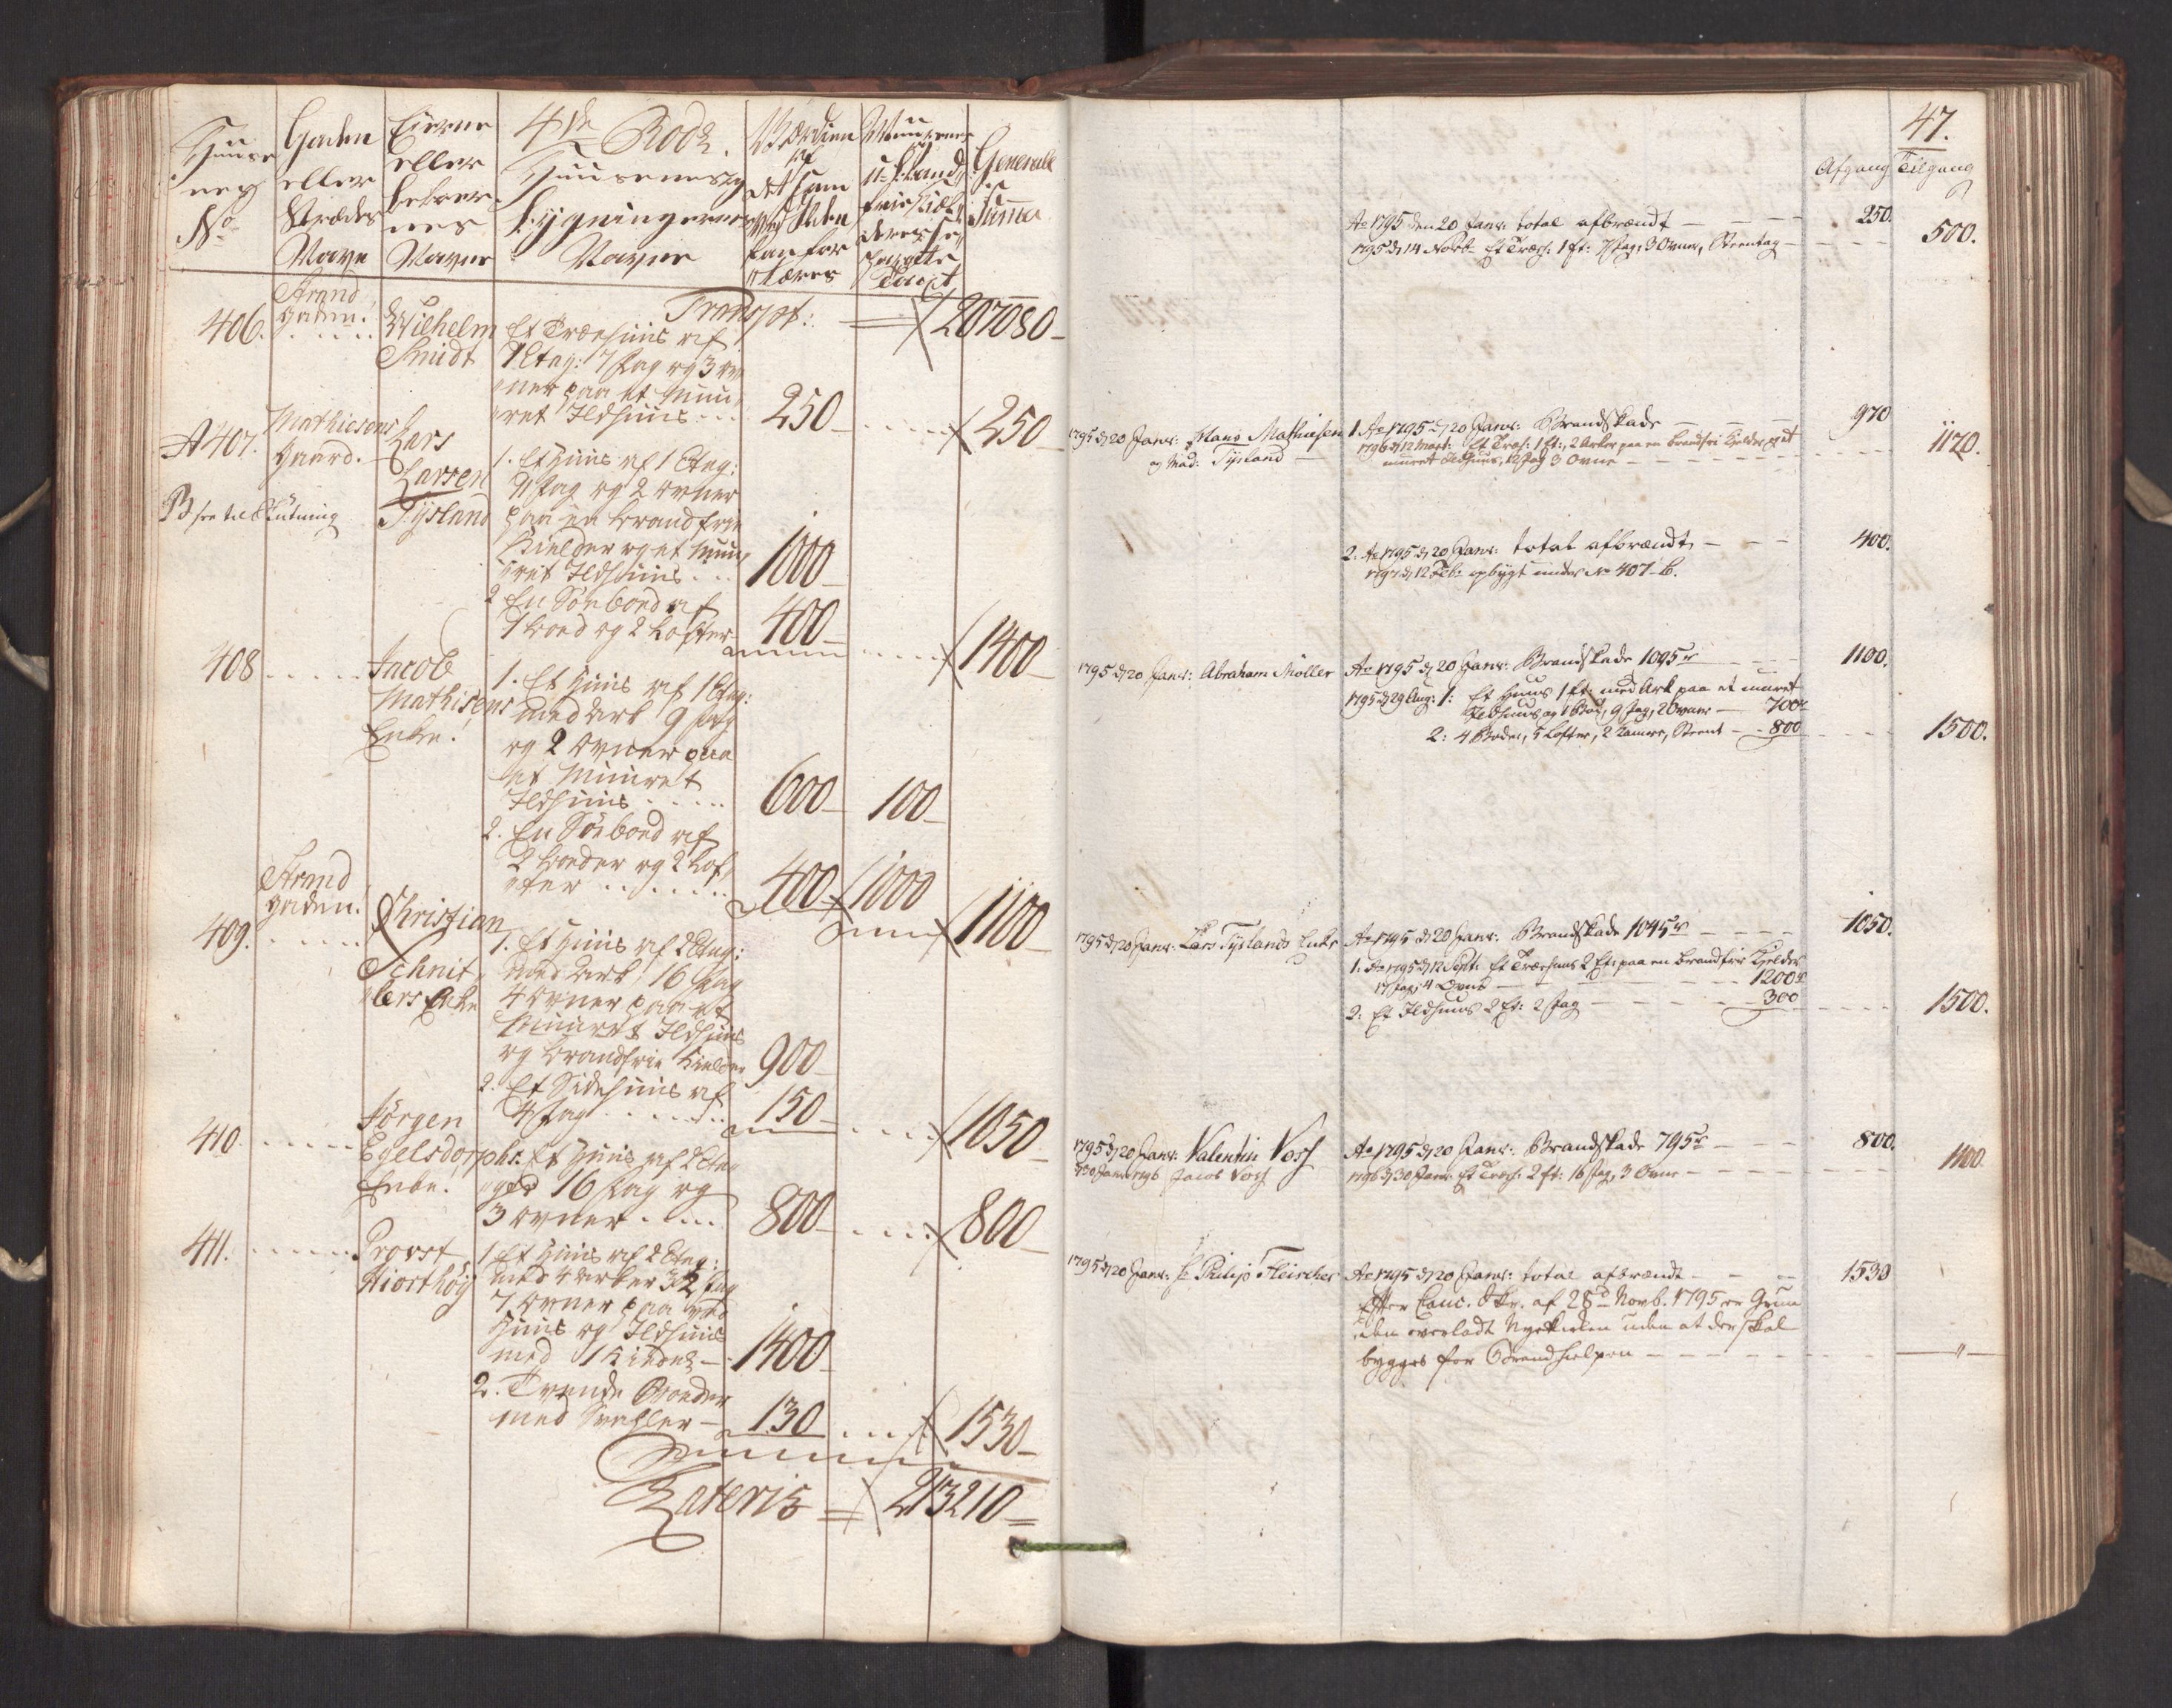 Huuse
nes
No
Gaden
eller
Strædes
Navn
Eierne
eller
beboer-
nes
Navne
4de Rode.
Huusenes og
bygningernes
Navne
Værdien
af
det som
ved Ilden
kan for
tæres
Muurenes
u-
Taxt
Generale
Summa
Transpt: 207080
406. Strand
gaden.
Wilhelm
Smidt
Et Træehuus af
1 Etag: 7 fag og 3 ov
ner paa et muu
ret Ildhuus 250 250
A 407. Mathiesens
Gaard.
B see til Slutning
Lars
Larsen
Tysland
1. Et Huus af 1 Etag:
11 fag og 2 ovner
paa en brandfrie
Kielder og et muu
ret Ildhuus 1000
2 En Søeboed af
1 boed og 2 Lofter 400 1400
408 Jacob
Mathisens
Enke.
1. Et Huus af 1 Etag:
med Ark 9 fag
og 2 ovner paa
et Muuret
Ildhuus 600 100
2. En Søeboed af
2 boeder og 2 Lof
ter 400 1000 1100
409. Strand
gaden.
Christian
Schnit
lers Enke
1. Et Huus af 2 Etag:
med Ark, 16 fag
4 ovner paa et
Muuret Ildhuus
og brandfrie Kielder 900
2. Et Sidehuus af
4 fag 150 1050
410. Jørgen
Egelsdorphs
Enke.
Et Huus af 2 Etag
16 fag og
3 ovner 800 800
411. Provst
Hiorthøy
1 Et Huus af 2 Etag:
med 4 Arker 32 fag
7 ovner paa
Huus og Ildhuus
med 1 Kielder 1400
2. Tvende Boeder
med Svahler 130 1530
Lateris 213210
47.
Afgang Tilgang
Ao 1795 den 20 Janr. total afbrændt 250.
1795 d. 14 Novb. Et Træeh: 1 Et: 7 fag, 3 Ovner, Steentag 500.
1795 d 20 Janr: Hans Mathiesen
og Mad: Tysland
1 Ao 1795 d 20 Janr: Brandskade 970
1796 d 12 Mart: Et Træeh: 1 Et:, 2 Arker paa en brandfri Kjelder, et
muret Ildhuus, 12 fag 3 Ovne 1170.
2: Ao 1795 d 20 Janr: total afbrændt 400.
1797 d 12 Feb: opbygt under No 407-b.
1795 d 20 Janr: Abraham Møller
Ao 1795 d 20 Janr: Brandskade 1095 r 1100.
1795 d 29 Aug: 1: Et Huus 1 Et: med Ark paa et muret
Ildhuus og 1 Bod, 9 fag, 2 Ovner 700 r
2: 4 Boder, 5 Lofter, 2 Kamre, Steent 800 1500.
1795 d 20 Janr: Lars Tyslands Enke
Ao 1795 d 20 Janr: Brandskade 1045 r 1050.
1: Ao 1795 d 12 Sept: Et Træehuus 2 Et: paa en brandfrie Kjelder
17 fag, 4 Ovne 1200 r
2: Et Ildhuus 2 Et: 2 fag 300 1500.
1795 d 20 Janr: Valentin Voss
d 30 Janr 1796 Jacob Voss
Ao 1795 d 20 Janr: Brandskade 795 r 800.
1796 d 30 Janr: Et Træeh: 2 Et: 16 fag, 3 Ovne 1100
1795 d 20 Janr: Philip Fleischer
Ao 1795 d 20 Janr: total afbrændt 1530
Efter Canc. Skr. af 28d Novb. 1795 er Grun
den overladt Nyekirken uden at der skal
bygges for Brandhielpen "